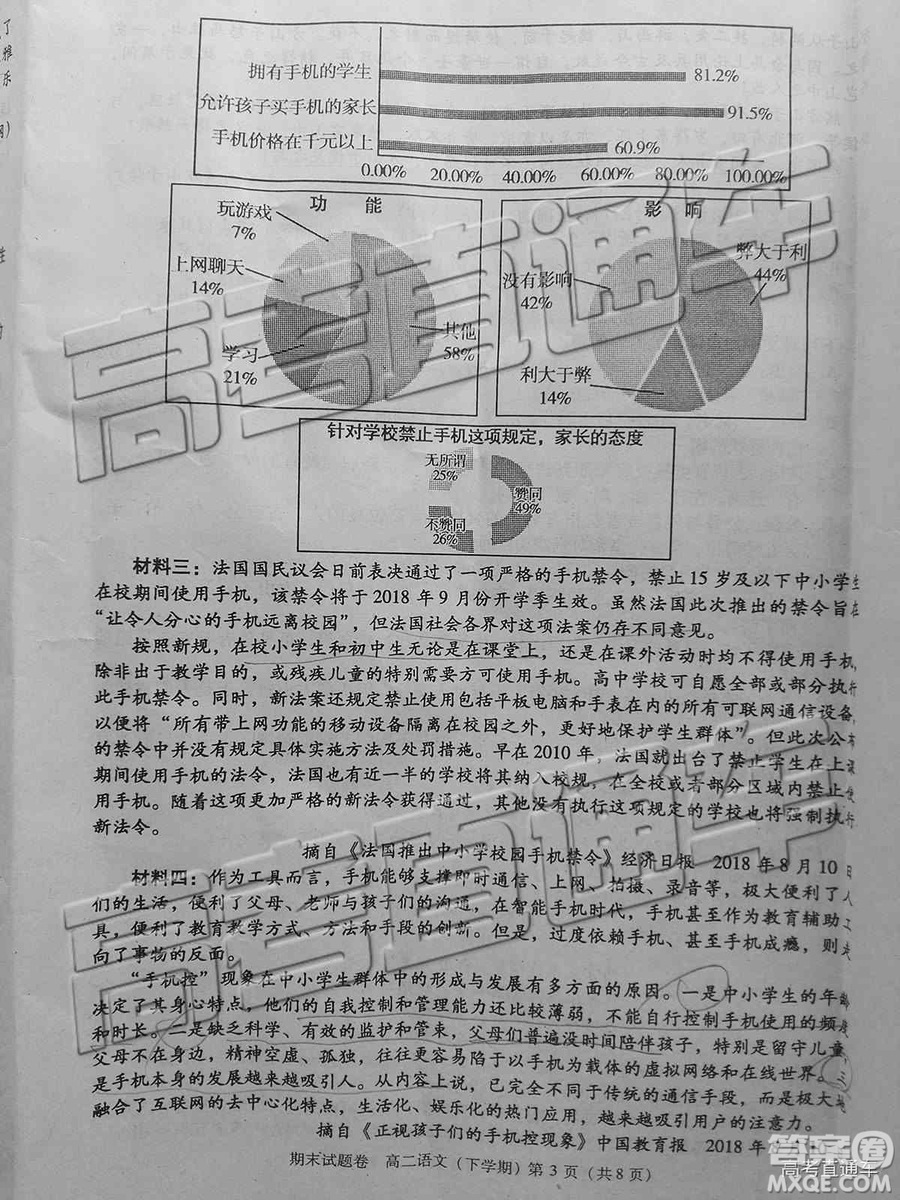 了
雅
乐
拥有手机的学生 81.2%
允许孩子买手机的家长 91.5%
手机价格在千元以上 60.9%
0.00% 20.00% 40.00% 60.00% 80.00% 100.00%
功 能
玩游戏
7%
上网聊天
14%
学习
21%
其他
58%
影 响
弊大于利
44%
没有影响
42%
利大于弊
14%
针对学校禁止手机这项规定，家长的态度
无所谓
25%
赞同
49%
不赞同
26%
材料三：法国国民议会日前表决通过了一项严格的手机禁令，禁止 15 岁及以下中小学生
在校期间使用手机，该禁令将于 2018 年 9 月份开学季生效。虽然法国此次推出的禁令旨在
“让令人分心的手机远离校园”，但法国社会各界对这项法案仍存不同意见。
按照新规，在校小学生和初中生无论是在课堂上，还是在课外活动时均不得使用手机，
除非出于教学目的，或残疾儿童的特别需要方可使用手机。高中学校可自愿全部或部分执行
此手机禁令。同时，新法案还规定禁止使用包括平板电脑和手表在内的所有可联网通信设备，
以便将“所有带上网功能的移动设备隔离在校园之外，更好地保护学生群体”。但此次公布
的禁令中并没有规定具体实施方法及处罚措施。早在 2010 年，法国就出台了禁止学生在上课
期间使用手机的法令，法国也有近一半的学校将其纳入校规，在全校或者部分区域内禁止使
用手机。随着这项更加严格的新法令获得通过，其他没有执行这项规定的学校也将强制执行
新法令。
摘自《法国推出中小学校园手机禁令》经济日报 2018 年 8 月 10 日
材料四：作为工具而言，手机能够支撑即时通信、上网、拍摄、录音等，极大便利了人
们的生活，便利了父母、老师与孩子们的沟通，在智能手机时代，手机甚至作为教育辅助工
具，便利了教育教学方式、方法和手段的创新。但是，过度依赖手机、甚至手机成瘾，则走
向了事物的反面。
“手机控”现象在中小学生群体中的形成与发展有多方面的原因。一是中小学生的年龄
决定了其身心特点，他们的自我控制和管理能力还比较薄弱，不能自行控制手机使用的频率
和时长。二是缺乏科学、有效的监护和管束，父母们普遍没时间陪伴孩子，特别是留守儿童，
父母不在身边，精神空虚、孤独，往往更容易陷于以手机为载体的虚拟网络和在线世界。三
是手机本身的发展越来越吸引人。从内容上说，已完全不同于传统的通信手段，而是极大地
融合了互联网的去中心化特点，生活化、娱乐化的热门应用，越来越吸引用户的注意力。
摘自《正视孩子们的手机控现象》中国教育报 2018 年
期末试题卷 高二语文（下学期）第 3 页（共 8 页）
高考直通车
高考直通车
高考直通车
答案圈
高考直通车
MXQE.COM